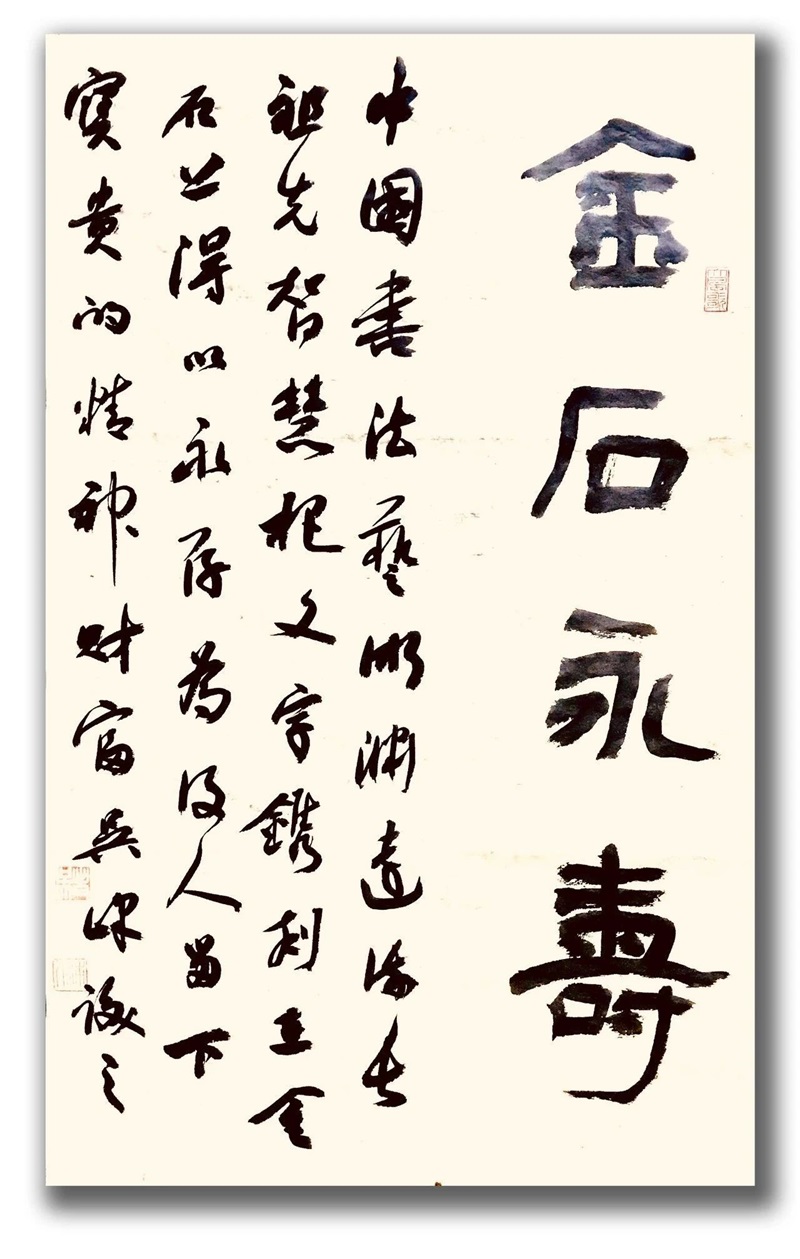 金石永壽
中國書法藝術淵遠流長
祖先智慧把文字鐫刻在金
石上得以永存為後人留下
寶貴的精神財富吳